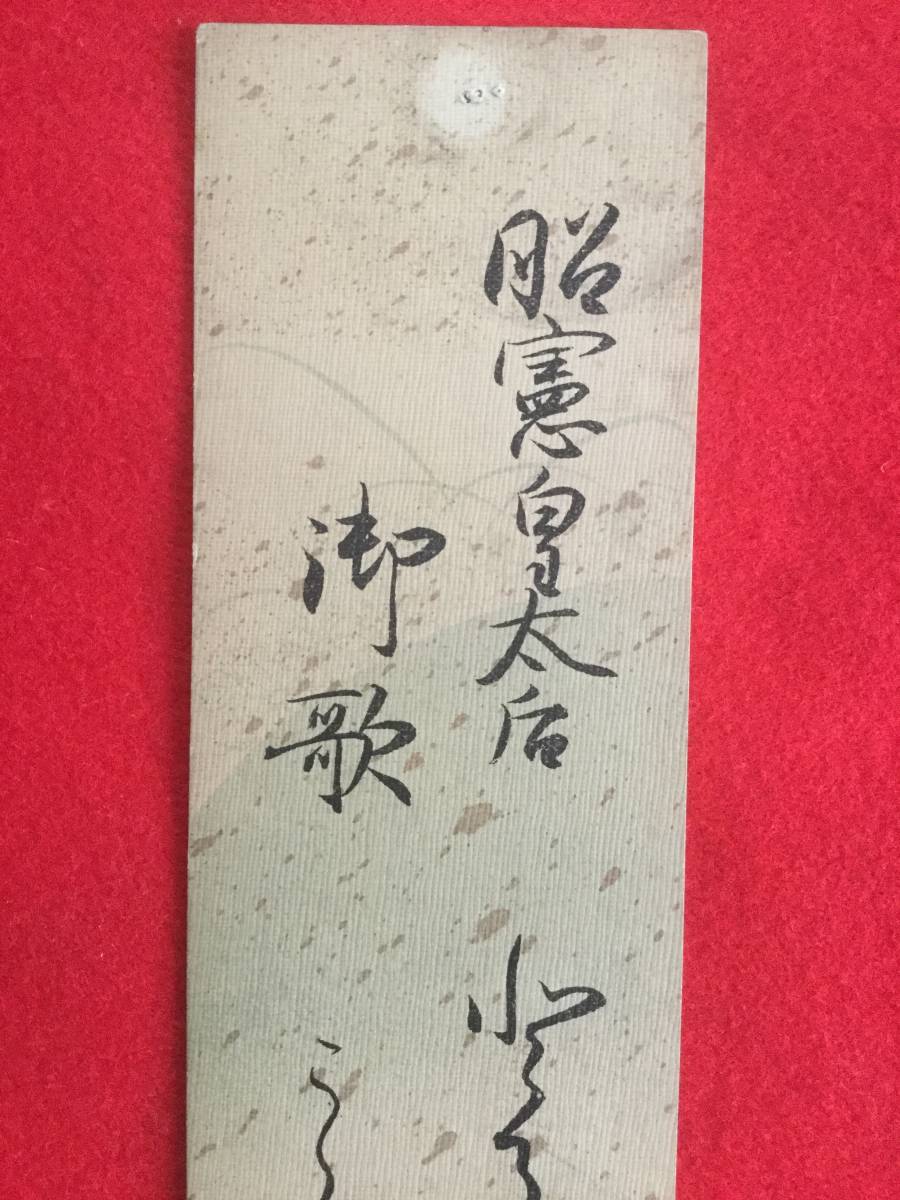 昭憲皇太后
御歌